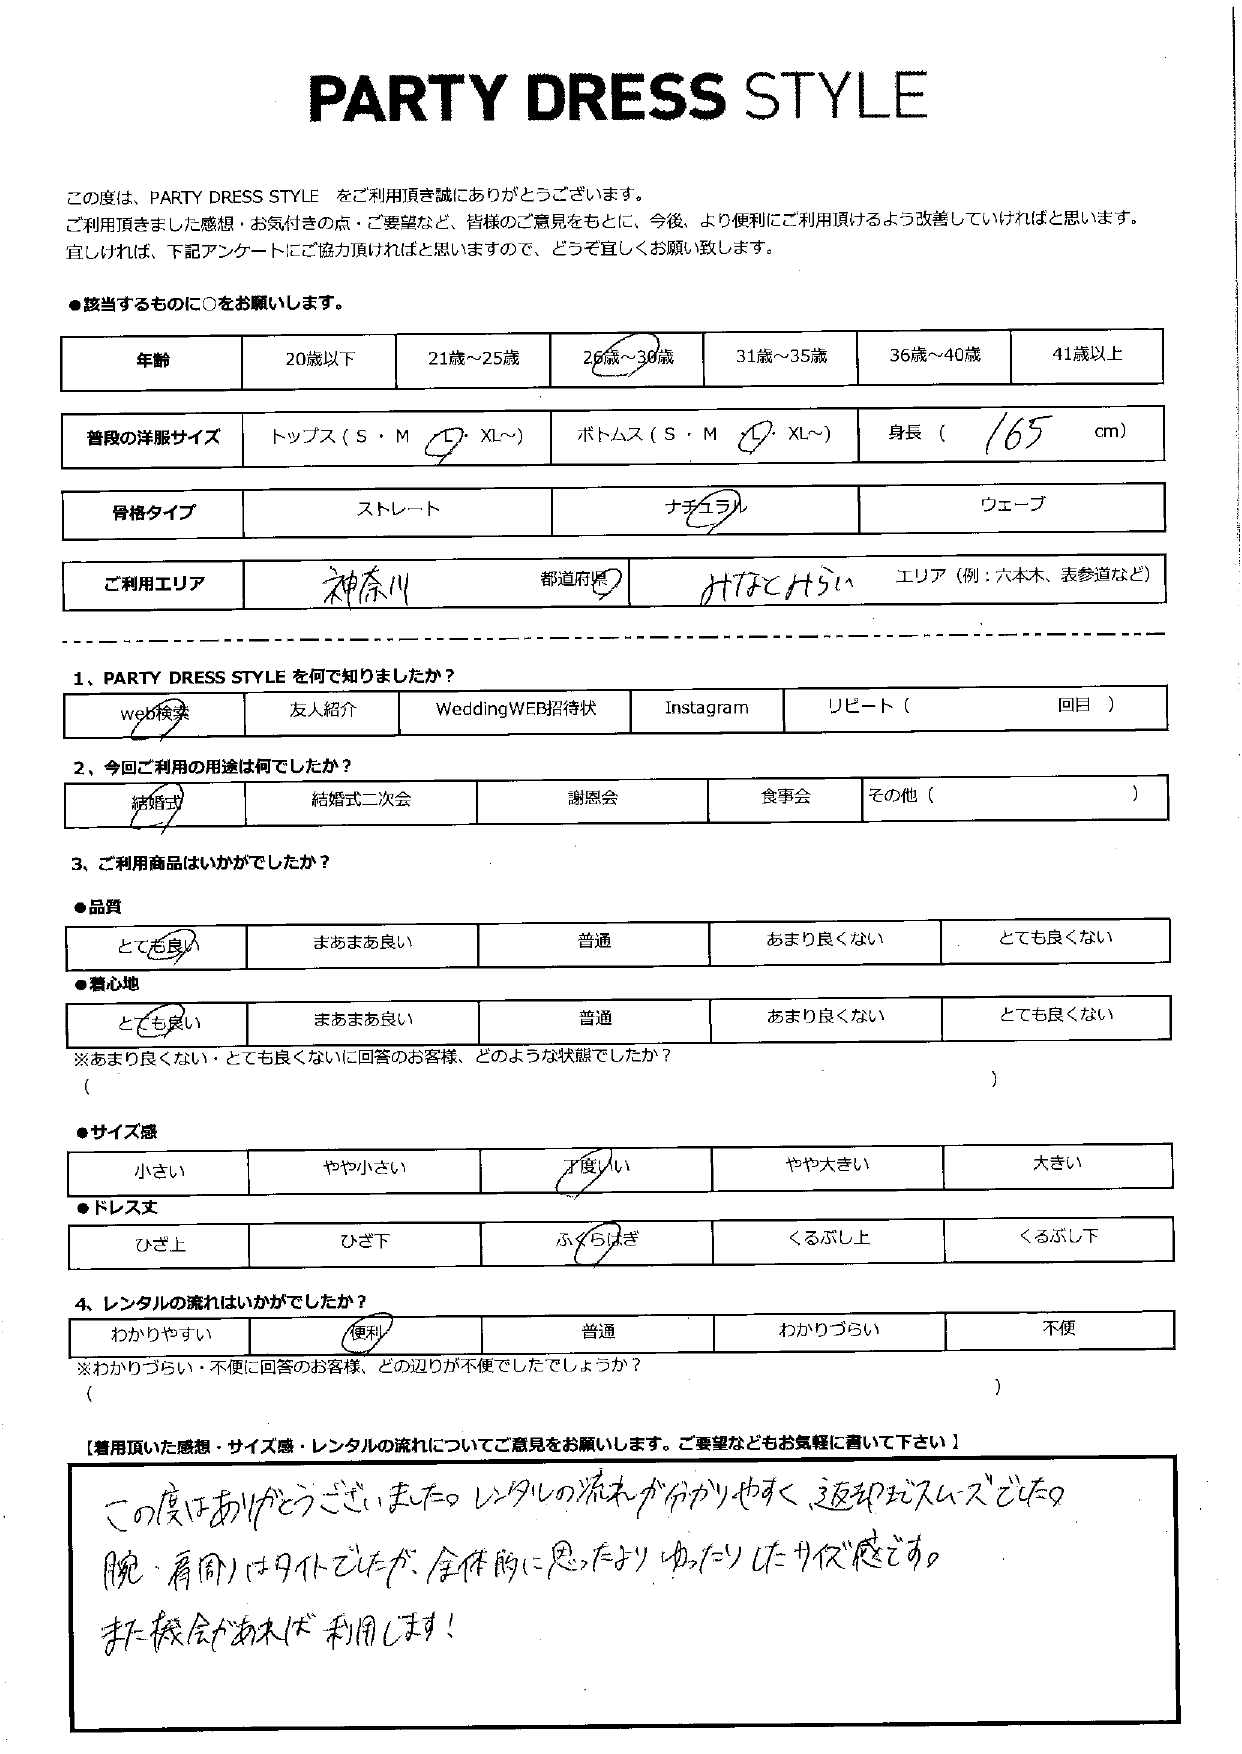 PARTY DRESS STYLE
この度は、PARTY DRESS STYLE をご利用頂き誠にありがとうございます。
ご利用頂きました感想・お気付きの点・ご要望など、皆様のご意見をもとに、今後、より便利にご利用頂けるよう改善していければと思います。
宜しければ、下記アンケートにご協力頂ければと思いますので、どうぞ宜しくお願い致します。
●該当するものに○をお願いします。
年齢 20歳以下 21歳～25歳 26歳～30歳 31歳～35歳 36歳～40歳 41歳以上
普段の洋服サイズ トップス ( S ・ M ・ L ・ XL～) ボトムス ( S ・ M ・ L ・ XL～) 身長 ( 165 cm)
骨格タイプ ストレート ナチュラル ウェーブ
ご利用エリア 神奈川 都道府県 みなとみらい エリア（例：六本木、表参道など）
1、PARTY DRESS STYLE を何で知りましたか？
web検索 友人紹介 WeddingWEB招待状 Instagram リピート（ 回目 ）
2、今回ご利用の用途は何でしたか？
結婚式 結婚式二次会 謝恩会 食事会 その他（ ）
3、ご利用商品はいかがでしたか？
●品質
とても良い まあまあ良い 普通 あまり良くない とても良くない
●着心地
とても良い まあまあ良い 普通 あまり良くない とても良くない
※あまり良くない・とても良くないに回答のお客様、どのような状態でしたか？
（ ）
●サイズ感
小さい やや小さい 丁度いい やや大きい 大きい
●ドレス丈
ひざ上 ひざ下 ふくらはぎ くるぶし上 くるぶし下
4、レンタルの流れはいかがでしたか？
わかりやすい 便利 普通 わかりづらい 不便
※わかりづらい・不便に回答のお客様、どの辺りが不便でしたでしょうか？
（ ）
【着用頂いた感想・サイズ感・レンタルの流れについてご意見をお願いします。ご要望などもお気軽に書いて下さい 】
この度はありがとうございました。レンタルの流れが分かりやすく、返却までスムーズでした。
腕・肩周りはタイトでしたが、全体的に思ったよりゆったりしたサイズ感です。
また機会があれば利用します！